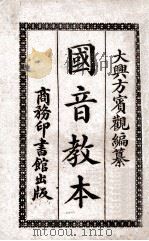 大興方賓觀編纂
國音教本
商務印書館出版